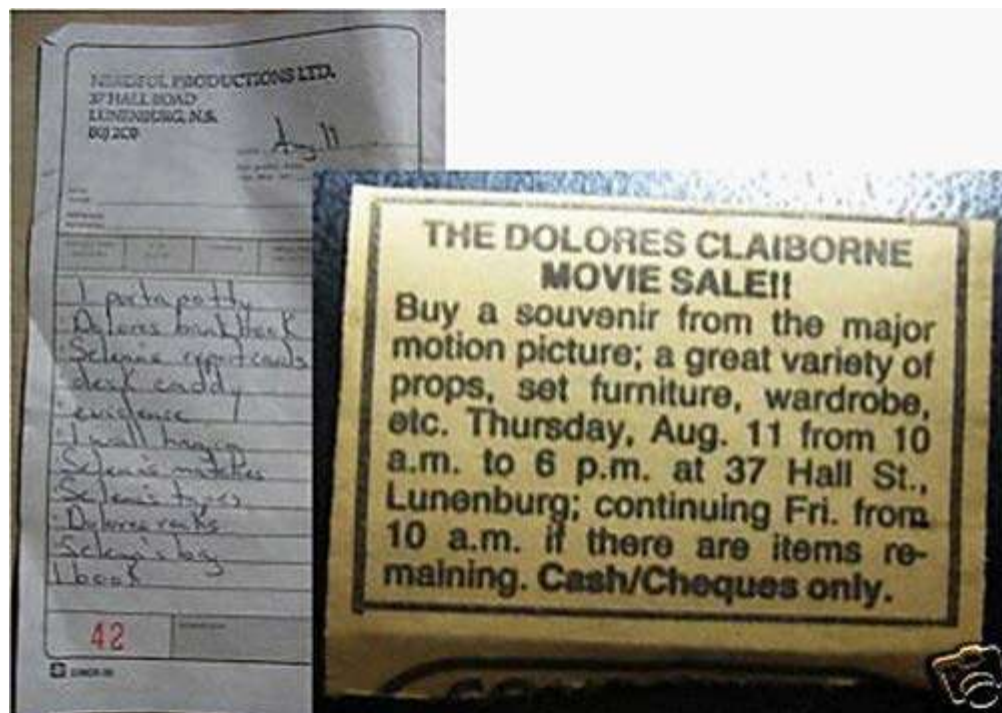 NEEDFUL PRODUCTIONS LTD.
37 HALL ROAD
LUNENBURG, N.S.
B0J 2C0
Aug 11
1 porta potty
Dolores bank book
Selena's report cards
desk caddy
evidence
1 wall hanging
Selena's matches
Selena's
Dolores rocks
Selena's bag
1 book
42
THE DOLORES CLAIBORNE
MOVIE SALE!!
Buy a souvenir from the major
motion picture; a great variety of
props, set furniture, wardrobe,
etc. Thursday, Aug. 11 from 10
a.m. to 6 p.m. at 37 Hall St.,
Lunenburg; continuing Fri. from
10 a.m. if there are items re-
maining. Cash/Cheques only.